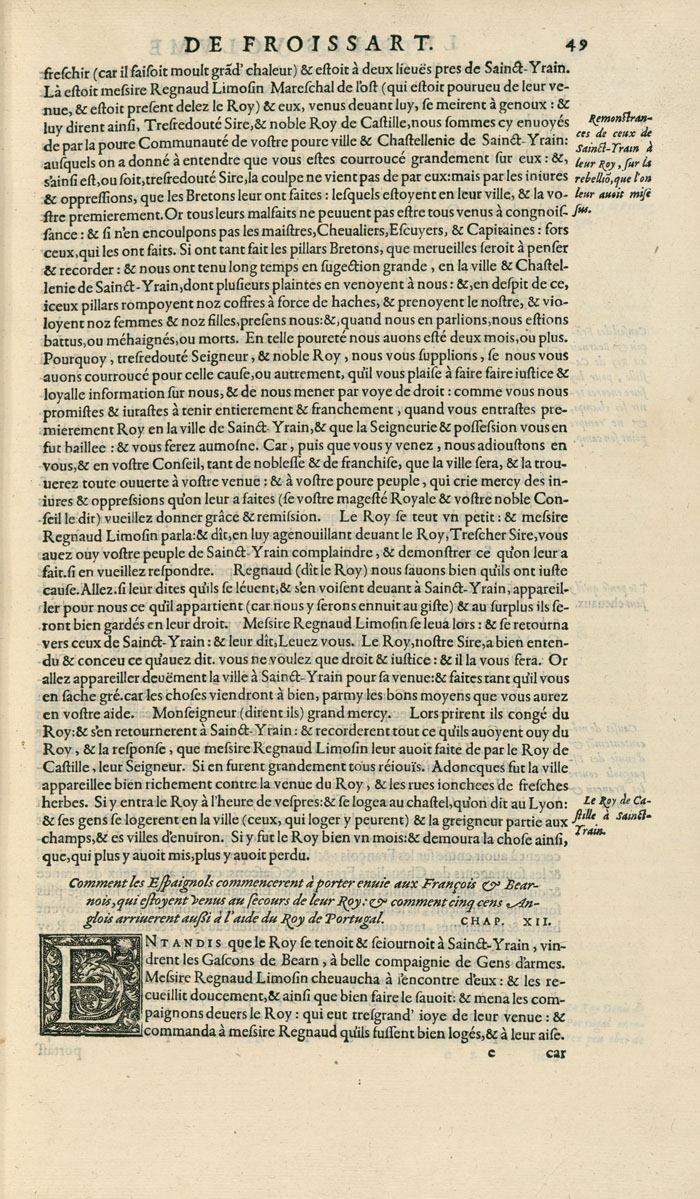 DE FROISSART. 49
freſchir (car il faiſoit moult grãd' chaleur) & eſtoit à deux lieuës pres de Sainct-Yrain.
Là eſtoit meſſire Regnaud Limoſin Mareſchal de l'oſt (qui eſtoit pourueu de leur ve-
nue, & eſtoit preſent delez le Roy) & eux, venus deuant luy, ſe meirent à genoux: &
luy dirent ainſi, Treſredouté Sire, & noble Roy de Caſtille, nous ſommes cy enuoyés
de par la poure Communauté de voſtre poure ville & Chaſtellenie de Sainct-Yrain:
auſquels on a donné à entendre que vous eſtes courroucé grandement ſur eux: &,
s'ainſi eſt, ou ſoit, treſredouté Sire, la coulpe ne vient pas de par eux: mais par les iniures
& oppreſſions, que les Bretons leur ont faites: leſquels eſtoyent en leur ville, & la vo-
ſtre premierement. Or tous leurs malfaits ne peuuent pas eſtre tous venus à congnoiſ-
ſance: & ſi n'en encoulpons pas les maiſtres, Cheualiers, Eſcuyers, & Capitaines: fors
ceux, qui les ont faits. Si ont tant fait les pillars Bretons, que merueilles ſeroit à penſer
& recorder: & nous ont tenu long temps en ſugection grande, en la ville & Chaſtel-
lenie de Sainct-Yrain, dont pluſieurs plaintes en venoyent à nous: &, en deſpit de ce,
iceux pillars rompoyent noz coffres à force de haches, & prenoyent le noſtre, & vio-
loyent noz femmes & noz filles, preſens nous: &, quand nous en parlions, nous eſtions
battus, ou méhaignés, ou morts. En telle poureté nous auons eſté deux mois, ou plus.
Pourquoy, treſredouté Seigneur, & noble Roy, nous vous ſupplions, ſe nous vous
auons courroucé pour celle cauſe, ou autrement, qu'il vous plaiſe à faire faire iuſtice &
loyalle information ſur nous, & de nous mener par voye de droit: comme vous nous
promiſtes & iuraſtes à tenir entierement & franchement, quand vous entraſtes pre-
mierement Roy en la ville de Sainct-Yrain, & que la Seigneurie & poſſeſſion vous en
fut baillee: & vous ferez aumoſne. Car, puis que vous y venez, nous adiouſtons en
vous, & en voſtre Conſeil, tant de nobleſſe & de franchiſe, que la ville ſera, & la trou-
uerez toute ouuerte à voſtre venue: & à voſtre poure peuple, qui crie mercy des in-
iures & oppreſſions qu'on leur a faites (ſe voſtre mageſté Royale & voſtre noble Con-
ſeil le dit) vueillez donner grâce & remiſſion. Le Roy ſe teut vn petit: & meſſire
Regnaud Limoſin parla: & dît, en luy agenouillant deuant le Roy, Treſcher Sire, vous
auez ouy voſtre peuple de Sainct-Yrain complaindre, & demonſtrer ce qu'on leur a
fait. ſi en vueillez reſpondre. Regnaud (dît le Roy) nous ſauons bien qu'ils ont iuſte
cauſe. Allez. ſi leur dites qu'ils ſe léuent, & s'en voiſent deuant à Sainct-Yrain, appareil-
ler pour nous ce qu'il appartient (car nous y ſerons ennuit au giſte) & au ſurplus ils ſe-
ront bien gardés en leur droit. Meſſire Regnaud Limoſin ſe leua lors: & ſe retourna
vers ceux de Sainct-Yrain: & leur dît, Leuez vous. Le Roy, noſtre Sire, a bien enten-
du & conceu ce qu'auez dit. vous ne voulez que droit & iuſtice: & il la vous fera. Or
allez appareiller deuëment la ville à Sainct-Yrain pour ſa venue: & faites tant qu'il vous
en ſache gré. car les choſes viendront à bien, parmy les bons moyens que vous aurez
en voſtre aide. Monſeigneur (dirent ils) grand mercy. Lors prirent ils congé du
Roy: & s'en retournerent à Sainct-Yrain: & recorderent tout ce qu'ils auoyent ouy du
Roy, & la reſponſe, que meſſire Regnaud Limoſin leur auoit faite de par le Roy de
Caſtille, leur Seigneur. Si en furent grandement tous réiouïs. Adoncques fut la ville
appareillee bien richement contre la venue du Roy, & les rues ionchees de freſches
herbes. Si y entra le Roy à l'heure de veſpres: & ſe logea au chaſtel, qu'on dit au Lyon:
& ſes gens ſe logerent en la ville (ceux, qui loger y peurent) & la greigneur partie aux
champs, & es villes d'enuiron. Si y fut le Roy bien vn mois: & demoura la choſe ainſi,
que, qui plus y auoit mis, plus y auoit perdu.
Remonſtran-
ces de ceux de
Sainct-Yrain à
leur Roy, ſur la
rebelliõ, que l'on
leur auoit miſe
ſus.
Le Roy de Ca-
ſtille à Sainct-
Yrain.
Comment les Eſpaignols commencerent à porter enuie aux François & Bear-
nois, qui eſtoyent venus au ſecours de leur Roy: & comment cinq cens An-
glois arriuerent auſſi à l'aide du Roy de Portugal. CHAP. XII.
ENTANDIS que le Roy ſe tenoit & ſeiournoit à Sainct-Yrain, vin-
drent les Gaſcons de Bearn, à belle compaignie de Gens d'armes.
Meſſire Regnaud Limoſin cheuaucha à l'encontre d'eux: & les re-
cueillit doucement, & ainſi que bien faire le ſauoit: & mena les com-
paignons deuers le Roy: qui eut treſgrand' ioye de leur venue: &
commanda à meſſire Regnaud qu'ils fuſſent bien logés, & à leur aiſe.
e car